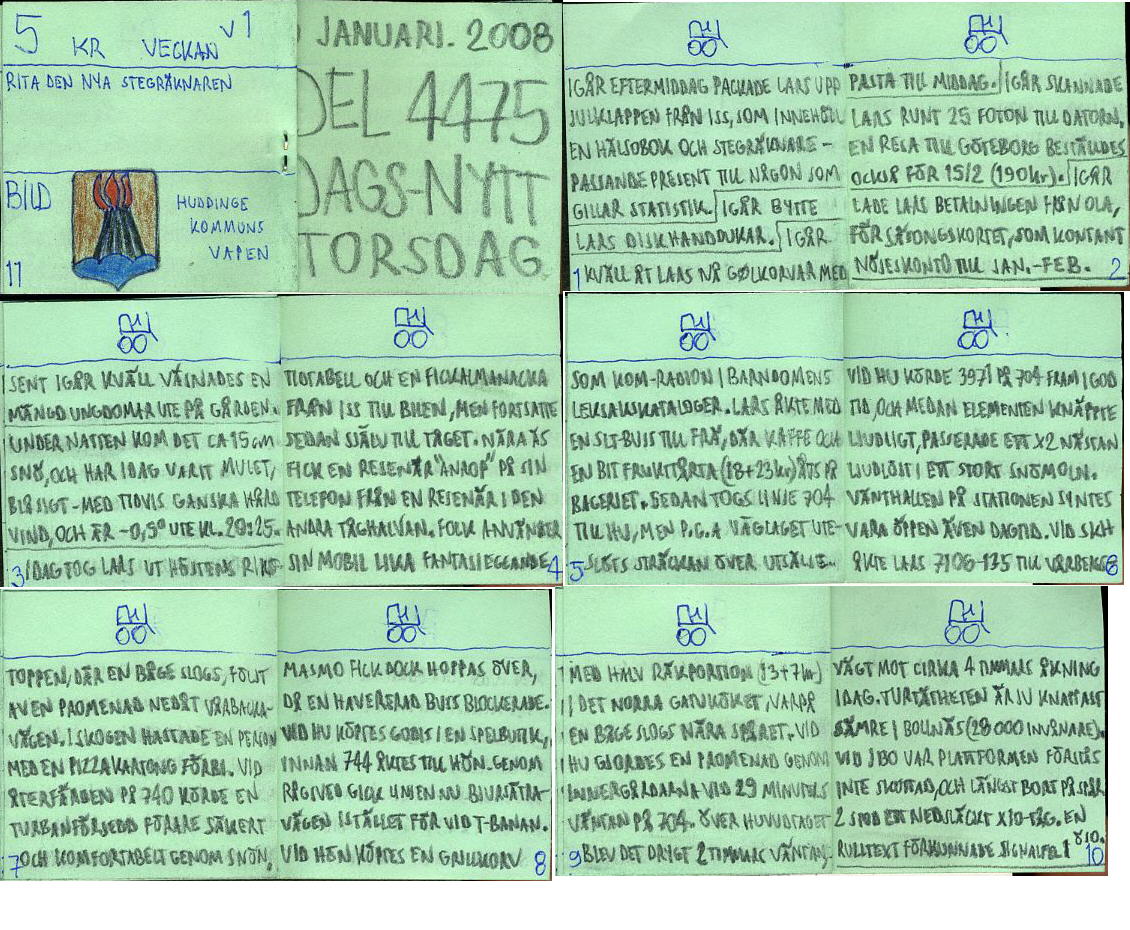 5 KR VECKAN V1
RITA DEN NYA STEGRÄKNAREN
BILD
HUDDINGE
KOMMUNS
VAPEN
11
JANUARI. 2008
DEL 4475
DAGS-NYTT
TORSDAG.
IGÅR EFTERMIDDAG PACKADE LARS UPP
JULKLAPPEN FRÅN ISS, SOM INNEHÖLL
EN HÄLSOBOK OCH STEGRÄKNARE -
PASSANDE PRESENT TILL NÅGON SOM
GILLAR STATISTIK. IGÅR BYTTE
LARS DISKHANDDUKAR. IGÅR
KVÄLL ÅT LARS NÅ GØLKORVAR MED
1
PASTA TILL MIDDAG. IGÅR SKANNADE
LARS RUNT 25 FOTON TILL DATORN.
EN RESA TILL GÖTEBORG BESTÄLLDES
OCKSÅ FÖR 15/2 (190kr). IGÅR
LADE LARS BETALNINGEN FRÅN OLA,
FÖR SÄSONGSKORTET, SOM KONTANT
NÖJESKONTO TILL JAN.-FEB.
2
SENT IGÅR KVÄLL VÄSNADES EN
MÄNGD UNGDOMAR UTE PÅ GÅRDEN.
UNDER NATTEN KOM DET CA 15 cm
SNÖ, OCH HAR IDAG VARIT MULET,
BLÅSIGT - MED TIDVIS GANSKA HÅRD
VIND, OCH ÄR -0,5° UTE KL. 20:25.
IDAG TOG LARS UT HÖSTENS RIKS-
3
TIDTABELL OCH EN FICKALMANACKA
FRÅN ISS TILL BILEN, MEN FORTSATTE
SEDAN SJÄLV TILL TÅGET. NÄRA ÄS
FICK EN RESENÄR "ANROP" PÅ SIN
TELEFON FRÅN EN RESENÄR I DEN
ANDRA TÅGHALVAN. FOLK ANVÄNDER
SIN MOBIL LIKA FANTASIEGGANDE
4
SOM KOM-RADION I BARNDOMENS
LEKSAKSKATALOGER. LARS ÅKTE MED
EN SLT-BUSS TILL FRÄ, DÄR KAFFE OCH
EN BIT FRUKTTÅRTA (18+23kr) ÅTS PÅ
BAGERIET. SEDAN TOGS LINJE 704
TILL HU, MEN P.G.A VÄGLAGET UTE-
SLÖTS STRÄCKAN ÖVER UTSÄLJE.
5
VID HU KÖRDE 3971 PÅ 704 FRAM I GOD
TID, OCH MEDAN ELEMENTEN KNÄPPTE
LJUDLIGT, PASSERADE ETT X2 NÄSTAN
LJUDLÖST I ETT STORT SNÖMOLN.
VÄNTHALLEN PÅ STATIONEN SYNTES
VARA ÖPPEN ÄVEN DAGTID. VID SKH
ÅKTE LARS 7106-135 TILL VÅRBERGS-
6
TOPPEN, DÄR EN BÅGE SLOGS, FÖLJT
AV EN PROMENAD NEDÅT VÅRBACKA-
VÄGEN. I SKOGEN HASTADE EN PERSON
MED EN PIZZAKARTONG FÖRBI. VID
ÅTERFÄRDEN PÅ 740 KÖRDE EN
TURBANFÖRSEDD FÖRARE SÄKERT
OCH KOMFORTABELT GENOM SNÖN,
7
MASMO FICK DOCK HOPPAS ÖVER,
DÅ EN HAVERERAD BUSS BLOCKERADE.
VID HU KÖPTES GODIS I EN SPELBUTIK,
INNAN 744 ÅKTES TILL HÖN. GENOM
RÅGSVED GICK LINJEN NU BJURSÄTRA-
VÄGEN ISTÄLLET FÖR VID T-BANAN.
VID HÖN KÖPTES EN GRILLKORV
8
MED HALV RÄKPORTION (13+7kr)
I DET NORRA GATUKÖKET, VARPÅ
EN BÅGE SLOGS NÄRA SPÅRET. VID
HU GJORDES EN PROMENAD GENOM
INNERGÅRDARNA VID 29 MINUTERS
VÄNTAN PÅ 704. ÖVER HUVUDTAGET
BLEV DET DRYGT 2 TIMMARS VÄNTAN,
9
VÄGT MOT CIRKA 4 TIMMARS ÅKNING
IDAG. TURTÄTHETEN ÄR JU KNAPPAST
SÄMRE I BOLLNÄS (28 000 INVÅNARE).
VID JBO VAR PLATTFORMEN FÖRSTÅS
INTE SKOTTAD, OCH LÄNGST BORT PÅ SPÅR
2 STOD ETT NEDSLÄCKT X10-TÅG. EN
RULLTEXT FÖRKUNNADE SIGNALFEL I
10